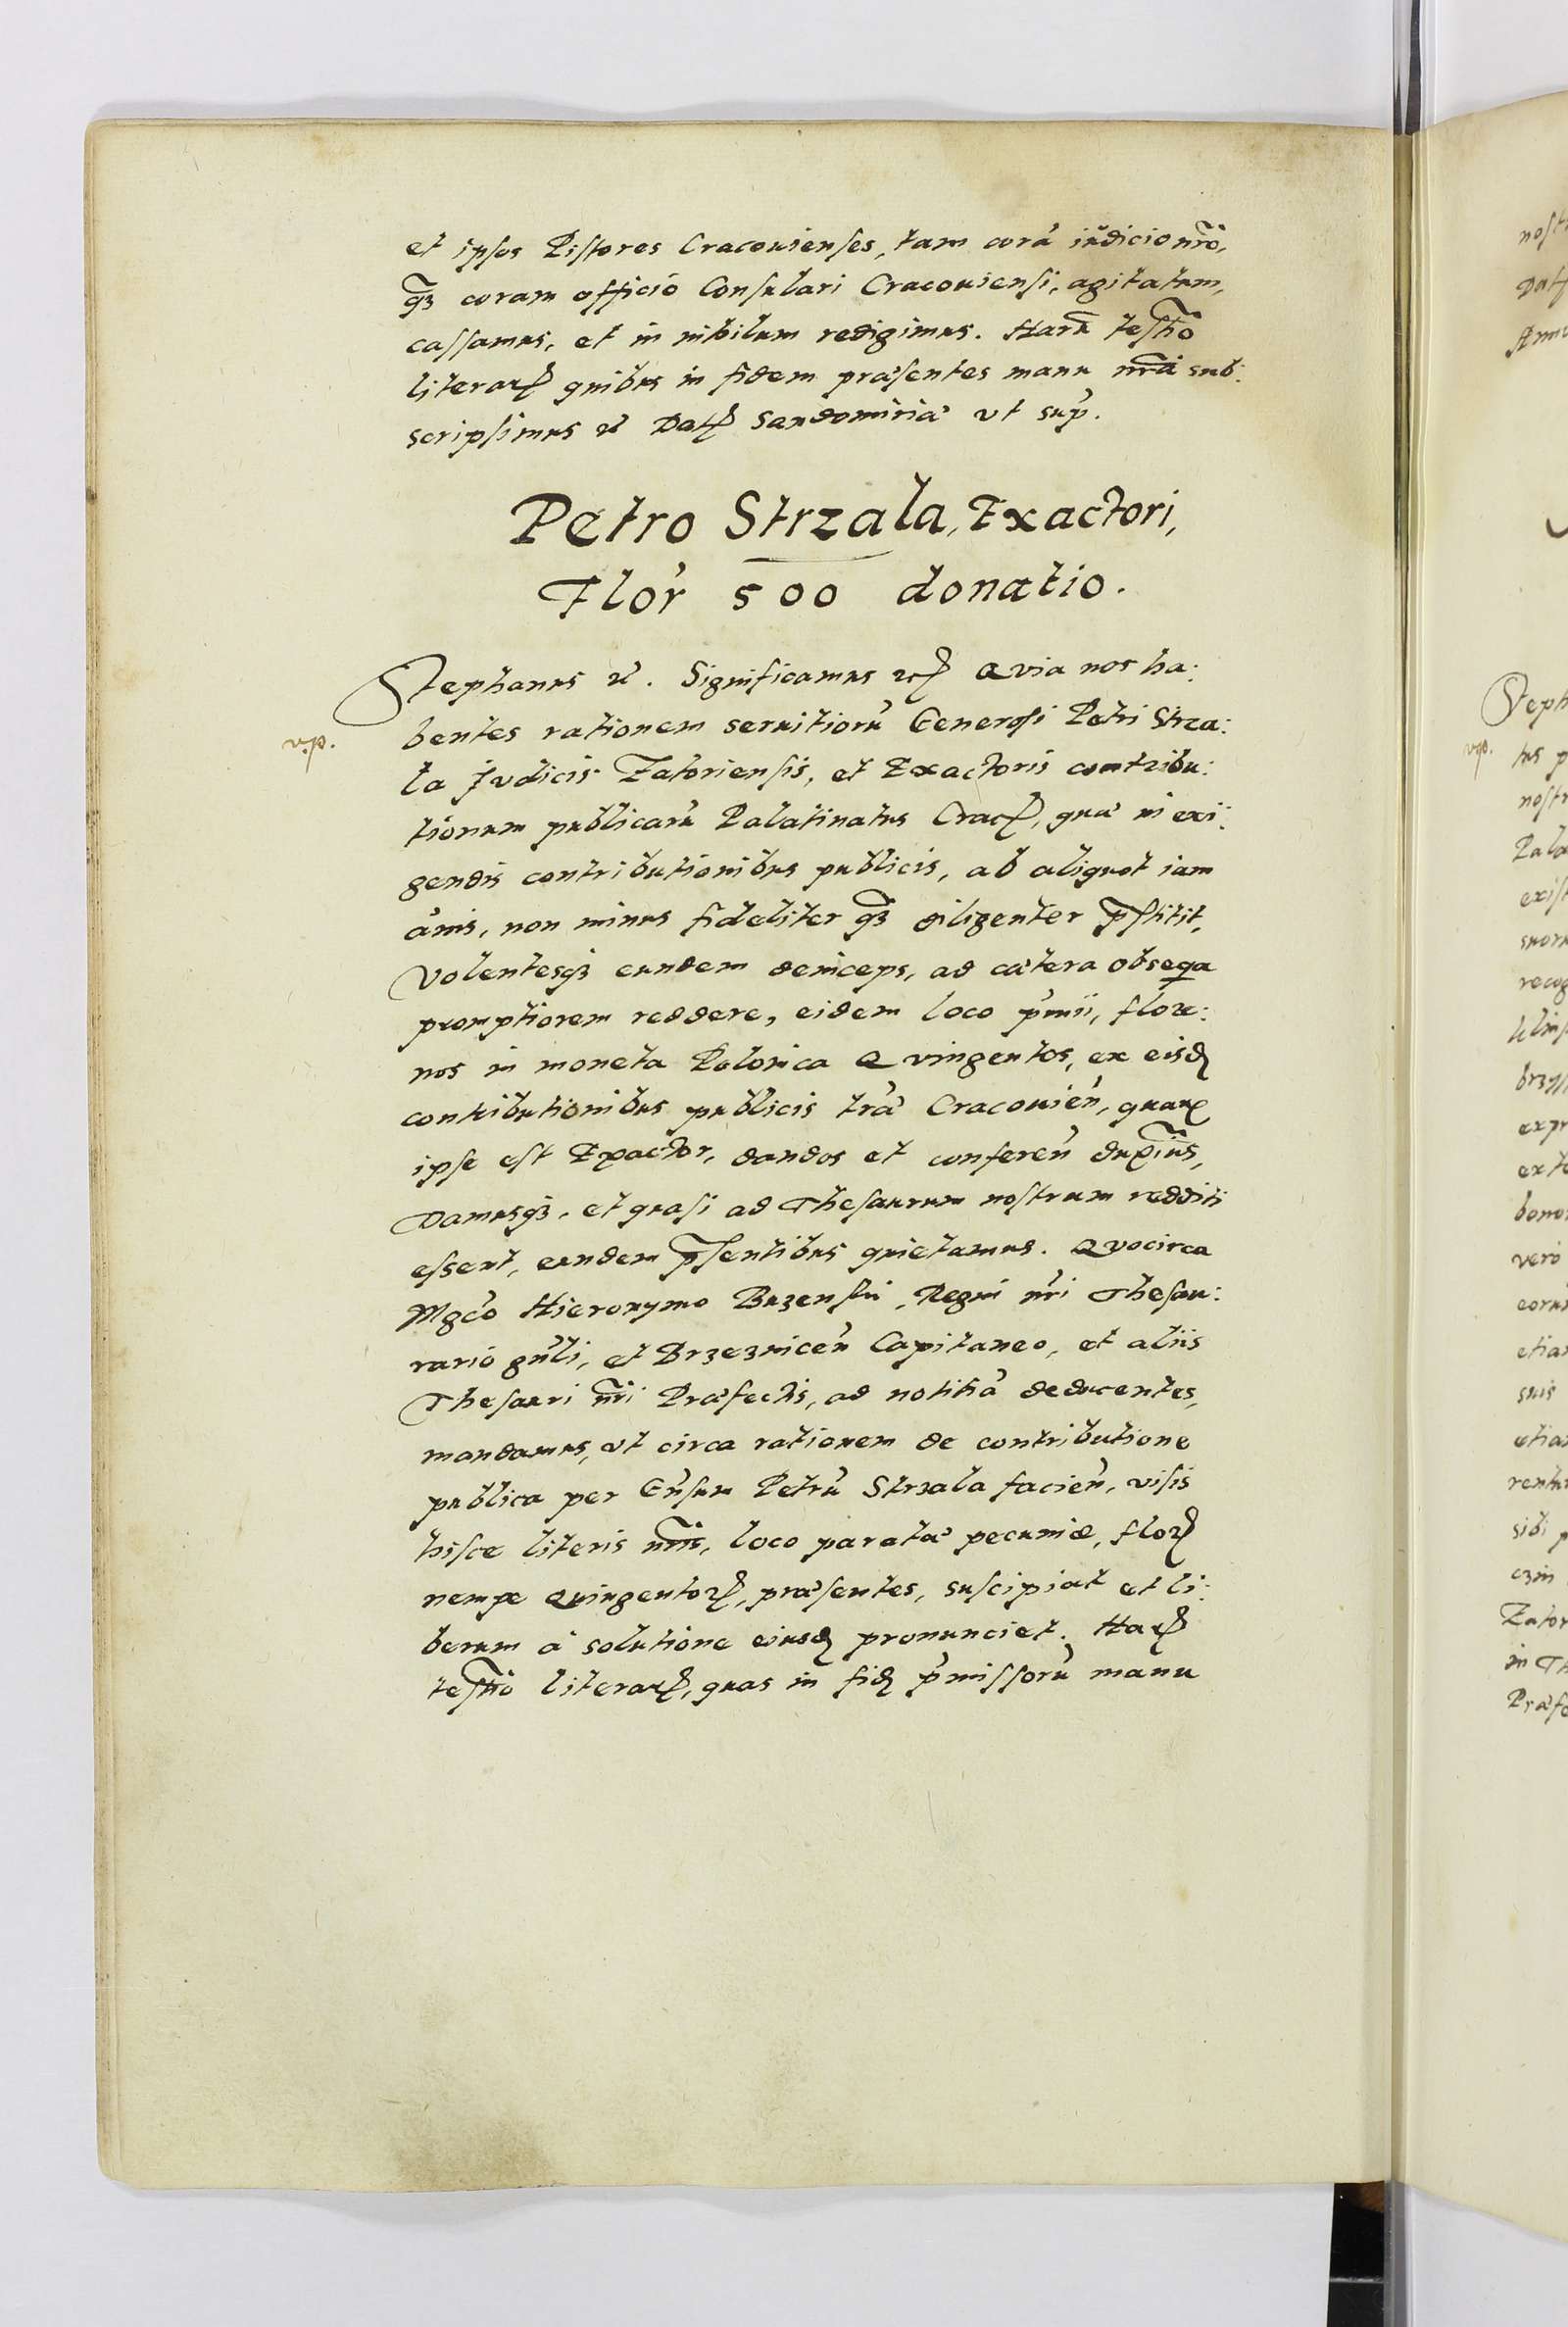 et ipsos Pistores Cracouienses, tam corã iudicio nrõ,
q̃ꝫ coram officio Consulari Cracouiensi, agitatum,
cassamus, et in nihilum redigimus. Harũ testĩo
literarꝝ quibus in fidem præsentes manu nrã sub:
scripsimus ꝛc̃ Datꝭ Sandomiriæ vt supͬ.
Petro Strzala, Exactori,
Flor̃ 500 donatio.
Stephanus ꝛc̃. Significamus ꝛcꝭ Quia nos ha:
v.p.
bentes rationem seruitiorũ Generosi Petri Strza:
la Judicis Zatoriensis, et Exactoris contribu:
tionum publicarũ Palatinatus Cracꝭ, quæ in exi:
gendis contributionibus publicis, ab aliquot iam
ãnis, non minus fideliter q̃ꝫ diligenter p̃stitit,
Volentesqꝫ eundem deinceps, ad cætera obseqa
promptiorem reddere, eidem loco p̃mii, flore:
nos in moneta Polonica Quingentos, ex eisdꝭ
contributionibus publicis trã Cracouien̄, quarꝝ
ipse est Exactor, dandos et conferen̄ duxĩus,
Damusqꝫ, et quasi ad Thesaurum nostrum redditi
essent, eundem p̃sentibus quietamus. Quocirca
Mgc̃o Hieronymo Buzenski, Regni nr̃i Thesau:
rario gñli, et Brzeznicen̄ Capitaneo, et aliis
Thesauri nr̃i Præfectis, ad notitiã deducentes,
mandamus, vt circa rationem de contributione
publica per Gñsum Petrũ Strzala facien̄, visis
hisce literis nr̃is, loco paratæ pecuniæ, florꝭ
nempe Quingentorꝝ, præsentes, suscipiat et li:
berum à solutione eiusdꝭ pronunciet. Harꝝ
testĩo literarꝝ, quas in fidꝭ p̃missorũ manu
nost
Dat
Steph
v.p.
tus p
nostr
Pala
exist
suoru
recog
expr
exte
bono
vero
eoru
etia
suis
etia
rentu
sibi p
Zator
in Th
Præfe